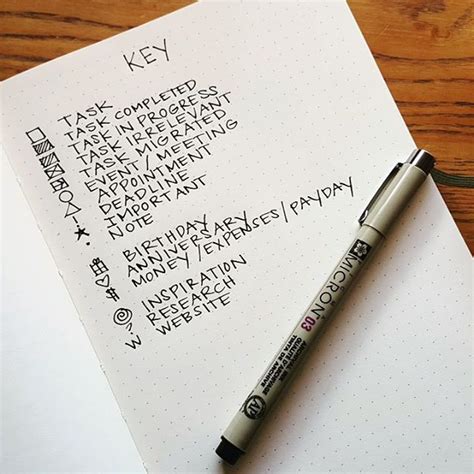 KEY
TASK
TASK COMPLETED
TASK IN PROGRESS
TASK IRRELEVANT
TASK MIGRATED
EVENT / MEETING
APPOINTMENT
DEADLINE
! IMPORTANT
NOTE
BIRTHDAY
ANNIVERSARY
$ MONEY/EXPENSES/PAYDAY
@ INSPIRATION
? RESEARCH
W WEBSITE
MICRON 03
ARCHIVAL INK